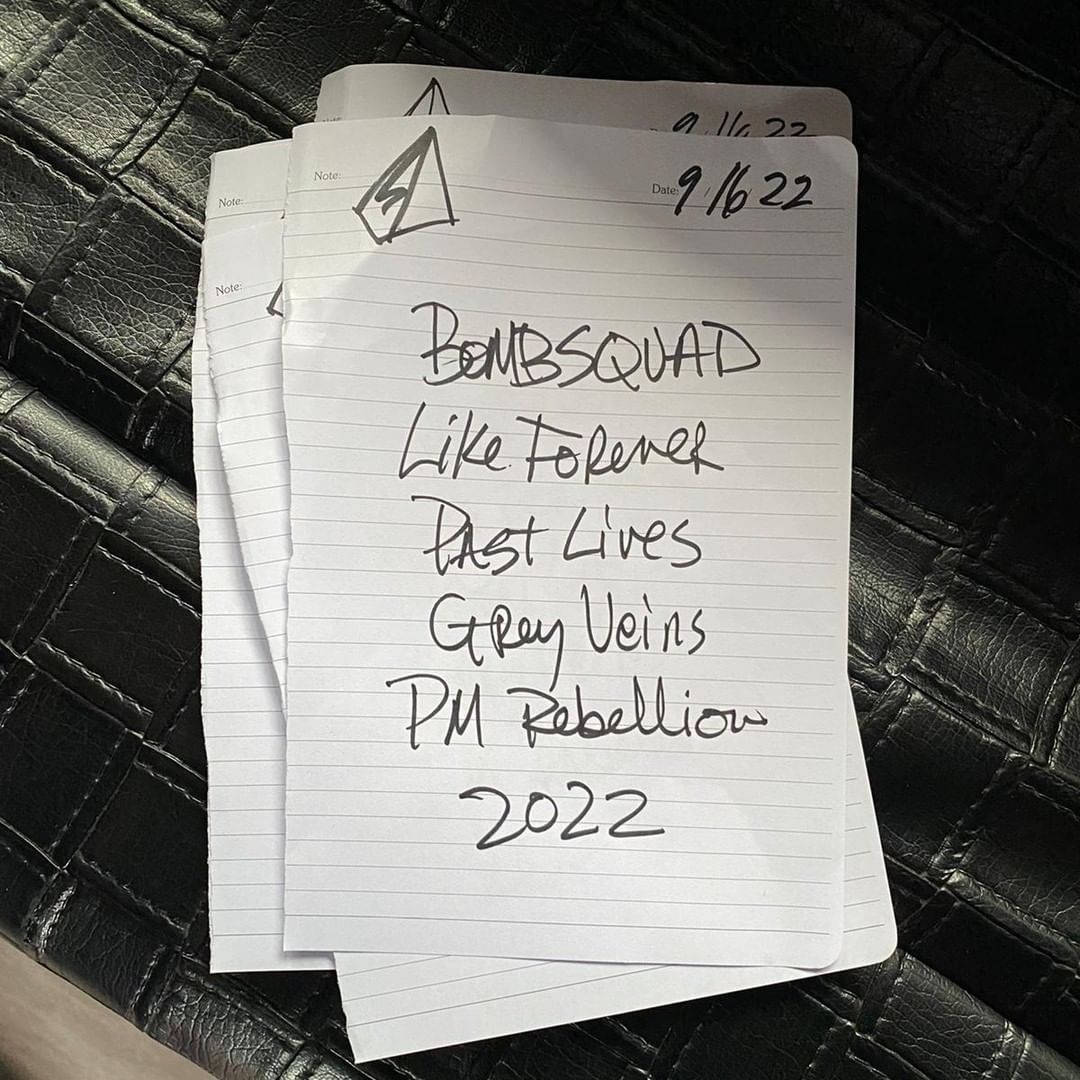 9/16 22
Note:
Date: 9/16 22
Note:
Note:
BOMBSQUAD
Like Forever
Past Lives
Grey Veins
PM Rebellion
2022